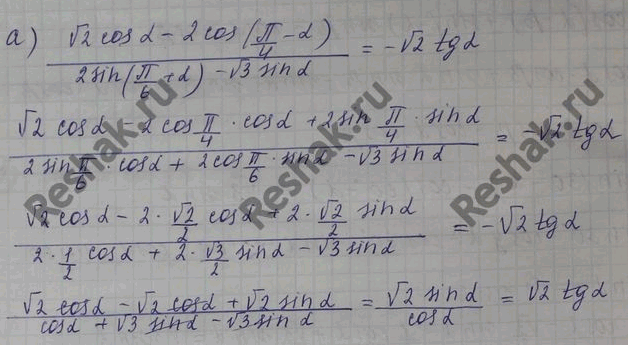 а) (√2 cos α − 2 cos(π/4 − α)) / (2 sin(π/6 + α) − √3 sin α) = −√2 tg α
(√2 cos α − 2 cos π/4 · cos α + 2 sin π/4 · sin α) / (2 sin π/6 · cos α + 2 cos π/6 · sin α − √3 sin α) = −√2 tg α
(√2 cos α − 2 · √2/2 cos α + 2 · √2/2 sin α) / (2 · 1/2 cos α + 2 · √3/2 sin α − √3 sin α) = −√2 tg α
(√2 cos α − √2 cos α + √2 sin α) / (cos α + √3 sin α − √3 sin α) = √2 sin α / cos α = √2 tg α
Reshak.ru
Reshak.ru
Reshak.ru